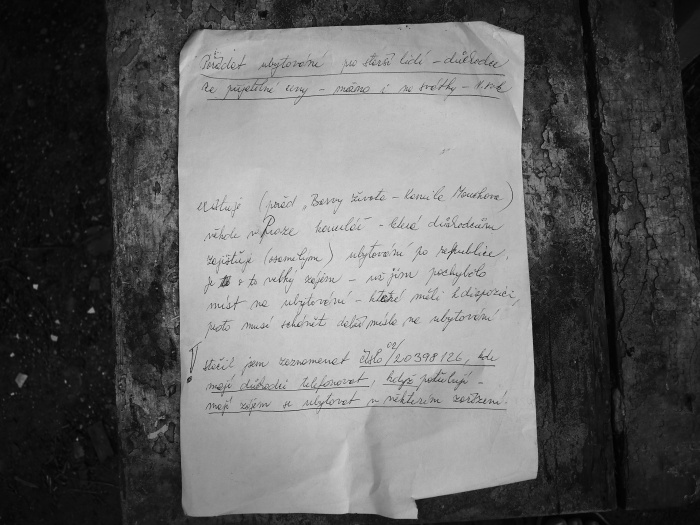 Pořádat ubytování pro starší lidi - důchodce
za přijatelné ceny - možno i na svátky -
existuje (pořad "Barvy života - Kamila Moučková)
někde v Praze kancelář - která důchodcům
zajišťuje (osamělým) ubytování po republice,
je o to velký zájem - už jim pochybělo
míst na ubytování - které měli k dispozici,
proto musí sehánět další místa na ubytování
! Stačil jsem zaznamenat číslo 02/20398126, kde
mají důchodci telefonovat, když potřebují -
mají zájem se ubytovat v některém zařízení.